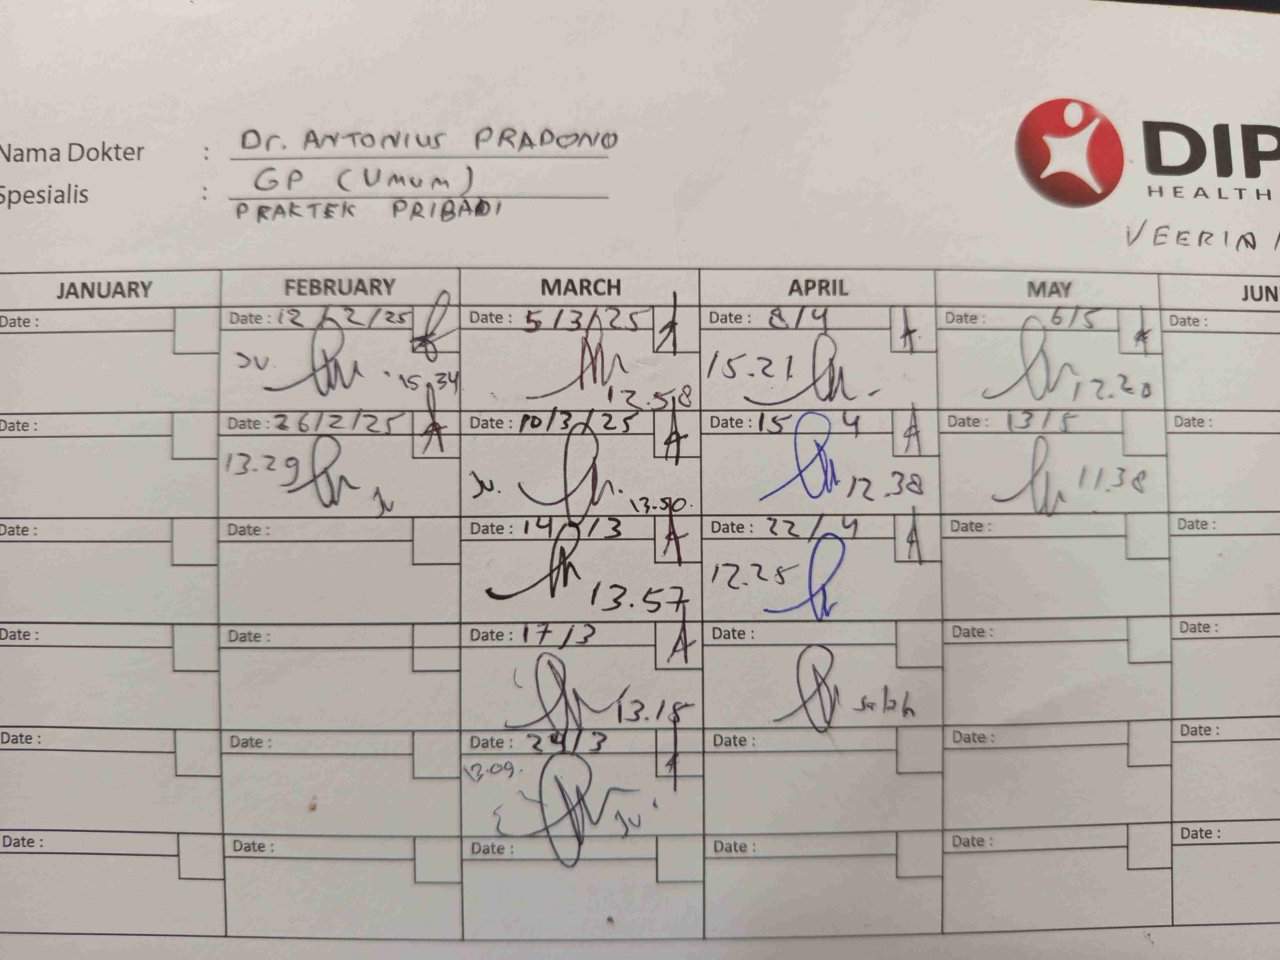 Nama Dokter : Dr. ANTONIUS PRADONO
Spesialis : GP (UMUM)
PRAKTEK PRIBADI
DIP
HEALTH
VEERIN
JANUARY FEBRUARY MARCH APRIL MAY JUN
Date : Date : 12/2/25 Date : 5/3/25 Date : 8/4 Date : 6/5 Date :
15.34 12.58 15.21 12.20
Date : Date : 26/2/25 Date : 10/3/25 Date : 15 4 Date : 13/5 Date :
13.29 13.50. 12.38 11.38
Date : Date : Date : 14/3 Date : 22/4 Date : Date :
13.57 12.25
Date : Date : Date : 17/3 Date : Date : Date :
13.18 salah
Date : Date : Date : 24/3 Date : Date : Date :
13.09.
Date : Date : Date : Date : Date : Date :